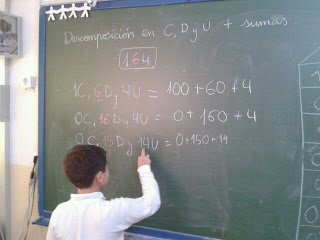 Descomposición en C, D y U + sumas
164
1C, 6D y 4U = 100 + 60 + 4
0C, 16D y 4U = 0 + 160 + 4
0C, 15D y 14U = 0 + 150 + 14